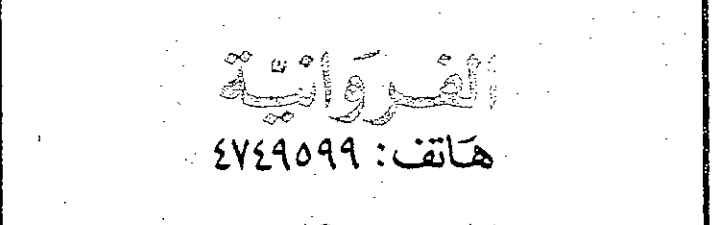 الفروَانيّة
هَاتف : ٤٧٤٩٥٩٩